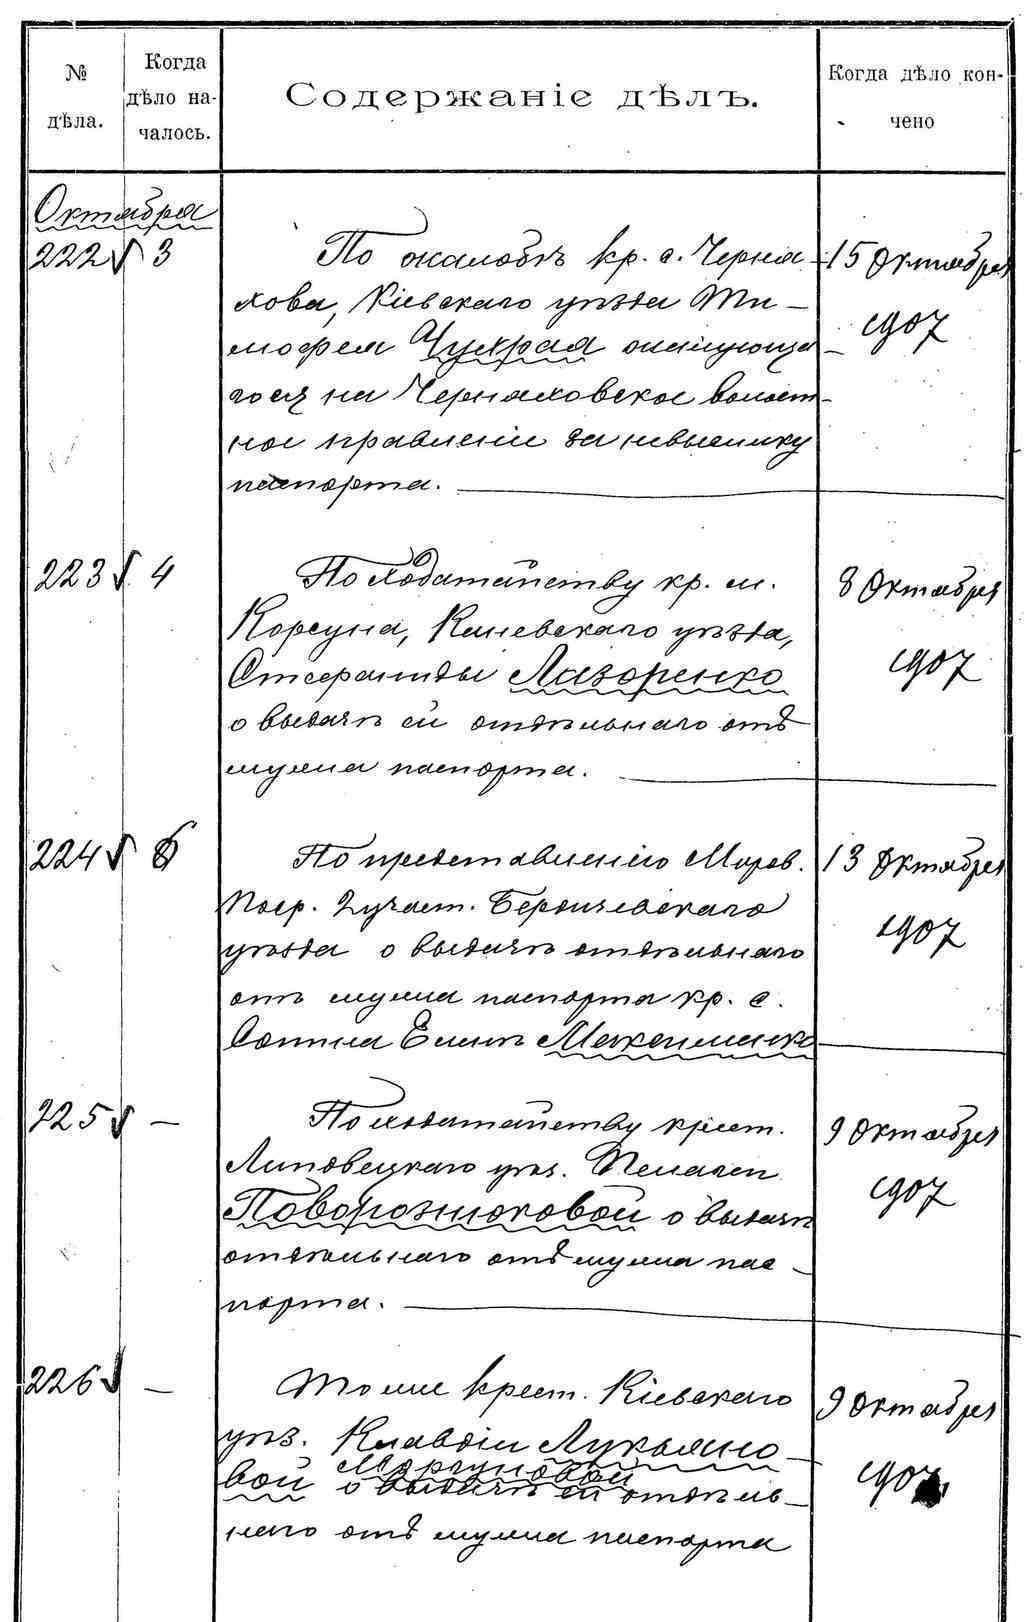 № дѣла.
Когда дѣло началось.
Содержаніе дѣлъ.
Когда дѣло кончено
Октября
222 3 По жалобѣ кр. с. Черня- 15 Октября
хова, Кіевскаго уѣзда Ти- 1907
мофея Чухрая жалующа-
гося на Черняховское волост-
ное правленіе за невысылку
паспорта.
223 4 По ходатайству кр. м. 8 Октября
Корсуна, Каневскаго уѣзда, 1907
Стефаниды Лазоренко
о выдачѣ ей отдѣльнаго отъ
мужа паспорта.
224 6 По представленію Миров. 13 Октября
Поср. 2 участ. Бердичевскаго 1907
уѣзда о выдачѣ отдѣльнаго
отъ мужа паспорта кр. с.
Еленѣ Максименко
225 — По ходатайству крест. 9 Октября
Липовецкаго уѣз. Пелагеи 1907
Поворознюковой о выдачѣ
отдѣльнаго отъ мужа пас-
порта.
226 — Тоже крест. Кіевскаго 9 Октября
уѣз. Клавдіи Лукьяно- 1907
Моргуновой
вой о выдачѣ ей отдѣль-
наго отъ мужа паспорта